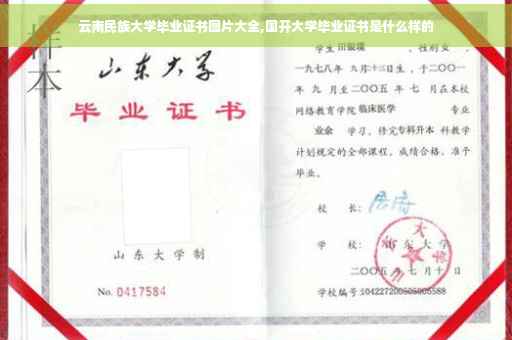 云南民族大学毕业证书图片大全,国开大学毕业证书是什么样的
样本
山东大学
毕业证书
山东大学制
No. 0417584
学生 田银瑞 ,性别 女 ,
一九七八年 九月十三日生,于二〇〇一
年 九 月至二〇〇五 年 七 月在本校
网络教育学院 临床医学 专业
业余 学习,修完专科升本 科教学
计划规定的全部课程,成绩合格,准予
毕业。
校 长:
学 校: 山东大学
二〇〇五 年 七 月 十 日
学校编号:104227200505005588